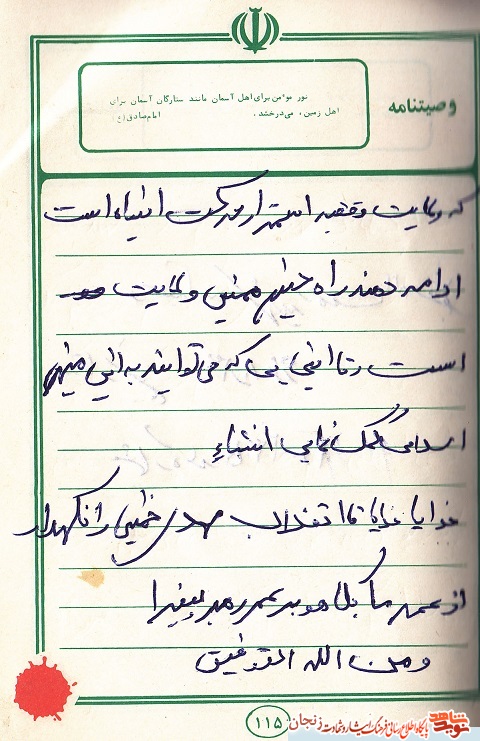 وصیتنامه
نور مؤمن برای اهل آسمان مانند ستارگان آسمان برای
اهل زمین، می‌درخشد.
امام صادق (ع)
که ولایت فقیه استمرار حرکت انبیاء است
ادامه دهنده راه همین ولایت
است و تا که می توانید به این
اسلامی کمک نمایی انشاءا
خدایا خدایا تا انقلاب مهدی خمینی را نگهدار
از عمر ما بکاه و بر عمر رهبر بیفزا
و من الله التوفیق
۱۱۵
نوید شاهد
پایگاه اطلاع رسانی فرهنگ ایثار و شهادت زنجان